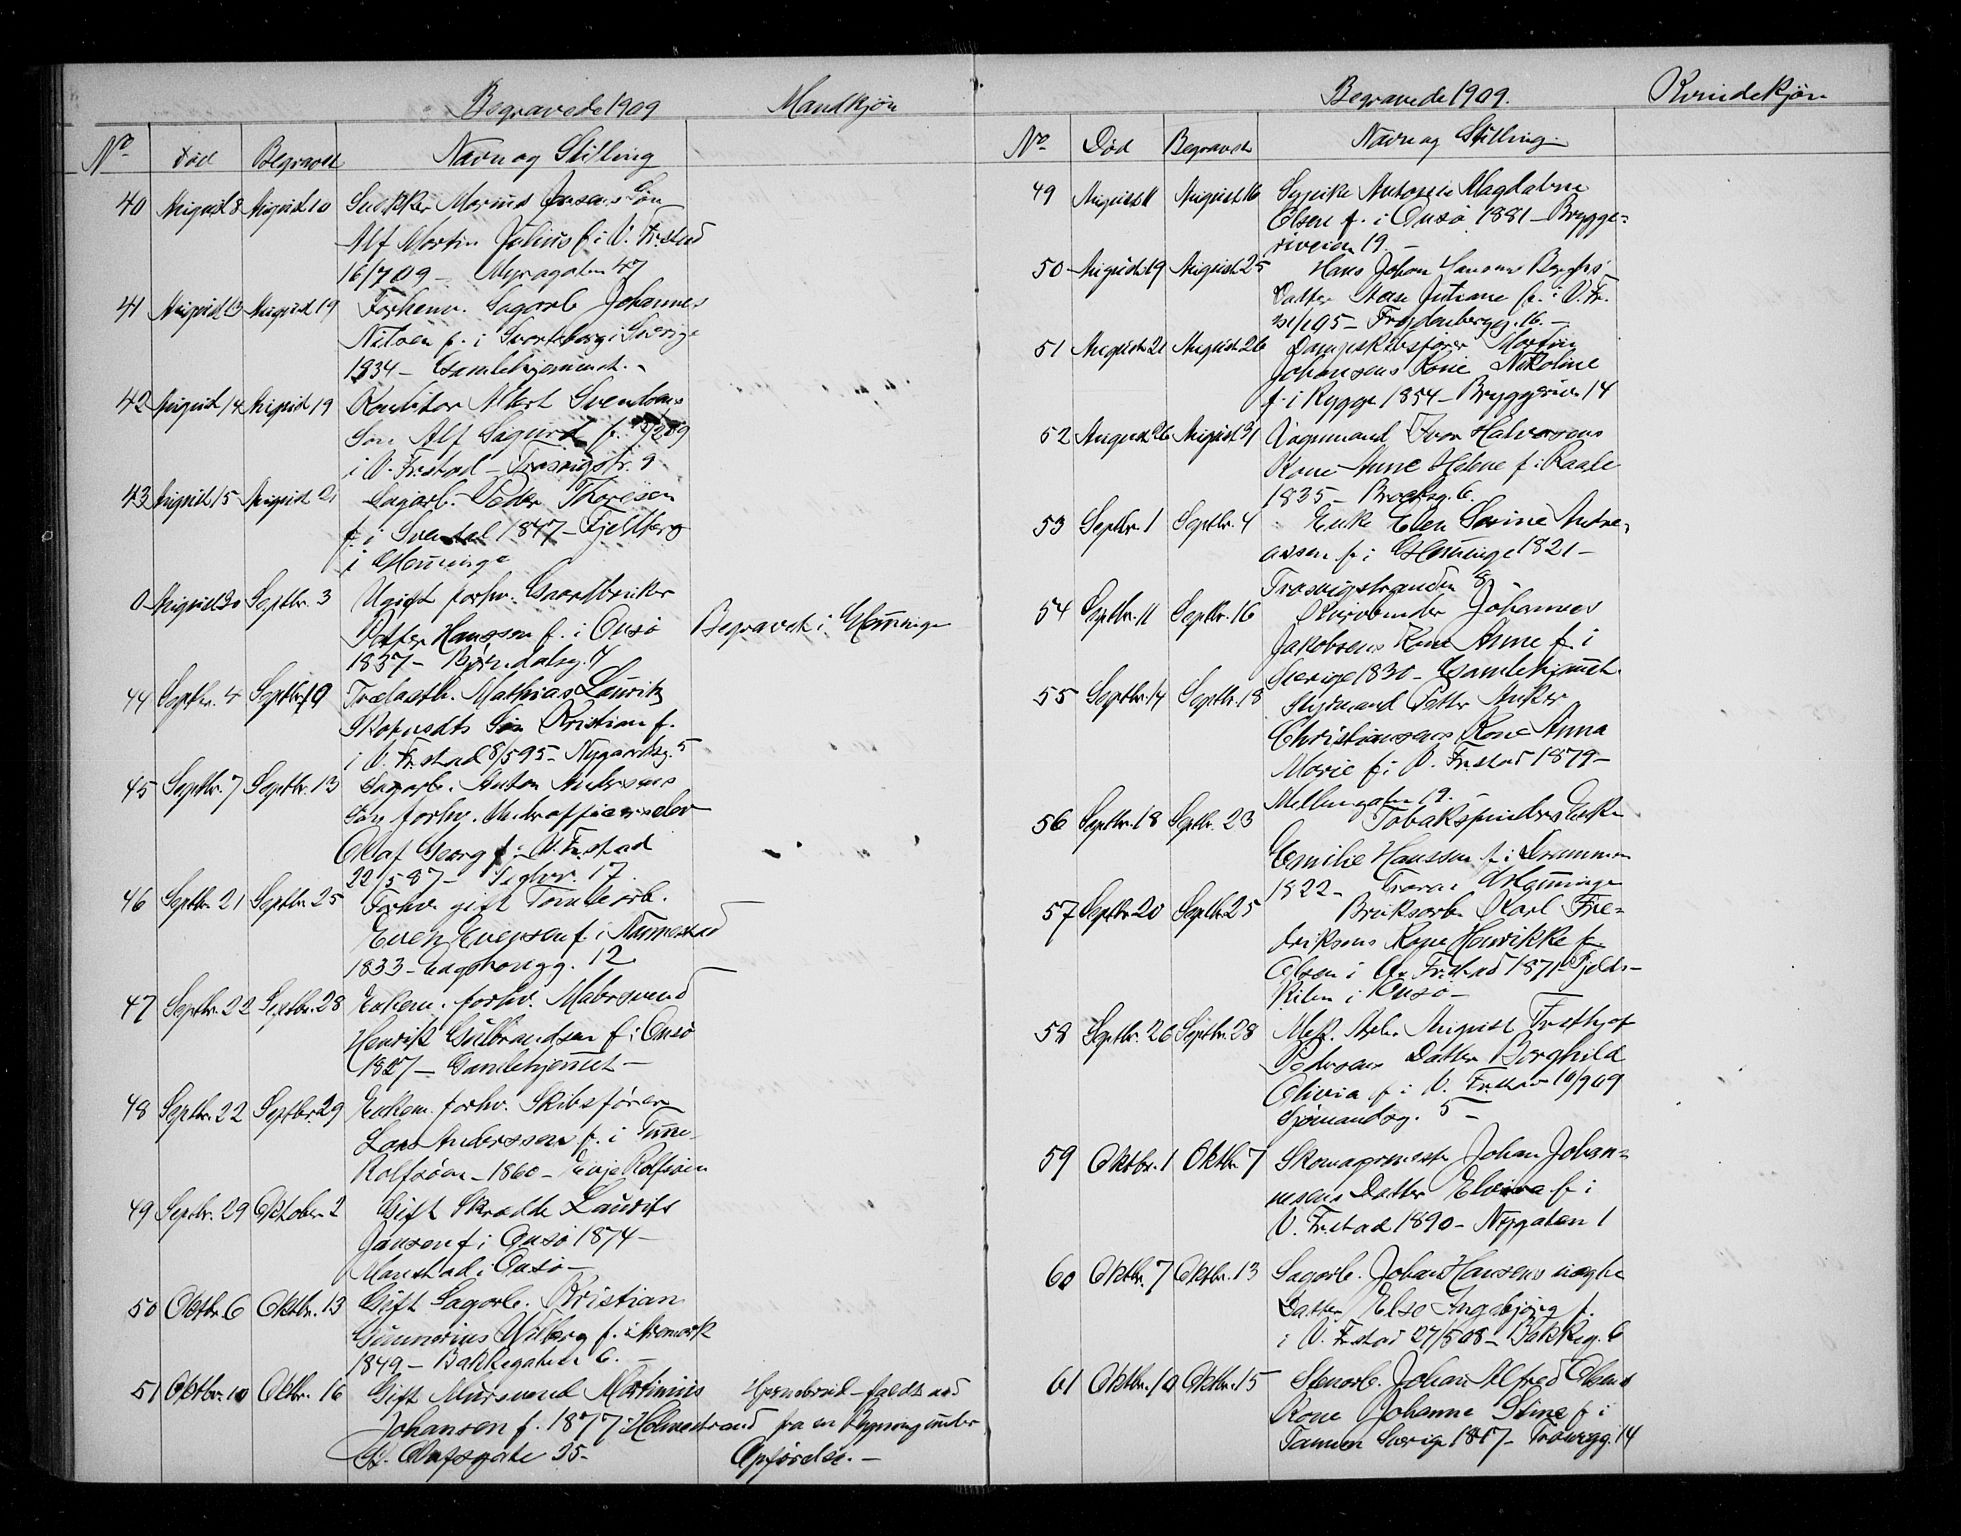 Begravede 1909 Mandkjön
No Död Begravet Navn og Stilling
40 August 8 August 10 Snekker Marius Jensens Sön
Alf Martin Julius f. i V. Fr.stad
16/7 09 – Myragaten 47
41 August 13 August 19 Forhenv. Sagarb. Johannes
Nilsen f. i Svarteborg i Sverige
1834 – Gamlehjemmet. –
42 August 14 August 19 Konditor Albert Svendsens
Sön Alf Sigurd f. 09
i V. Fr.stad – Trosvigstr. 9
43 August 15 August 21 Sagarb. Peder Thoresen
f. i 1847 – Fjeldberg
i Glemminge
0 August 30 Septbr. 3 Ugift forhv. Gaardbruker
Petter Hanssen f. i Onsö Begravet i Glemminge
1837 – Björndalsg. 4
44 Septbr. 4 Septbr. 9 Trælastb. Mathias Lauritz
Sön Kristian f.
i V. Fr.stad 8/5 95 – Nygaardsg. 5
45 Septbr. 7 Septbr. 13 Sagarb. Anton Andersens
Sön forhv. Underofficerselev
Olaf Georg f. i V. Fr.stad
22/5 87 – 17.
46 Septbr. 21 Septbr. 25 Forhv. gift Tomtearb.
Even Evensen f. i
1833 – 12
47 Septbr. 22 Septbr. 28 Enkem. forhv. Matrosmend
Henrik Gulbrandsen f. i Onsö
1827 – Gamlehjemmet –
48 Septbr. 22 Septbr. 29 Enkem. forhv. Skibsförer
Lars Anderssen f. i Tune
Rolfsöen – 1860 – Rolfsöen
49 Septbr. 29 Oktober 2 Gift Skrædde Laurits
Jansen f. i Onsö 1874 –
Manstad i Onsö –
50 Oktbr. 6 Oktbr. 13 Gift Sagarb. Kristian
Gunnerius Wilberg f. i Aremark
1849 – Bakkegaten 6. –
51 Oktbr. 10 Oktbr. 16 Gift Mursvend Martinius Hjernebrud – faldt ned
Johansen f. 1877 i Holmestrand fra en Bygning under
St. Olafsgate 35 – Opförelse. –
Begravede 1909. Kvindekjön
No Död Begravet Navn og Stilling
49 August 11 August 16 Sypike Antonie Magdalene
Olsen f. i Onsö 1881 – Brygge-
riveien 19. –
50 August 19 August 25 Hans Johan Hansens
Datter Juliane f. i V. Fr.
05 – 16. –
51 August 21 August 26 Dampskibsförer Martin
Johansens Kone Nikoline
f. i Rygge 1854 – Bryggeriv. 14
52 August 26 August 31 Vognmand Ivar Halvorsens
Kone Anne Helene f. i Raade
1835 – Brochsg. 6.
53 Septbr. 1 Septbr. 4 Enke Elen Sovine Andre-
assen f. i Glemminge 1821 –
Trosvigstranden 8
54 Septbr. 11 Septbr. 16 Johannes
Jakobsens Kone Anne f. i
Sverige 1830 – Gamlehjemmet.
55 Septbr. 14 Septbr. 18 Styrmand Petter Anker
Christiansens Kone Anna
Marie f. i V. Fr.stad 1879 –
Mellemgaten 19. –
56 Septbr. 18 Septbr. 23 Tobakspinders Enke
Emilie Hanssen f. i Drammen
1822 – Glemminge
57 Septbr. 20 Septbr. 25 Bruksarb. Karl Fre-
driksens Kone Henrikke f.
Olsen i Fr.stad 1871
Kilen i Onsö –
58 Septbr. 26 Septbr. 28 Mek. Arb. August Fridthjof
Pedersens Datter Borghild
Olivia f. i V. Fr.stad 10/9 09
Sjömandsg. 5 –
59 Oktbr. 1 Oktbr. 7 Skomagermester Johan Johan-
nesens Datter Elvira f. i
V. Fr.stad 1890 – Nygaten 1
60 Oktbr. 7 Oktbr. 13 Sagarb. Johan Hansens uægte
Datter Else Ingebjörg f.
i V. Fr.stad 27/5 08 – Bakkeg. 6
61 Oktbr. 10 Oktbr. 15 Stenarb. Johan Alfred Olsens
Kone Johanne Stine f. i
Tanum Sverige 1847 – Trosvigg. 14